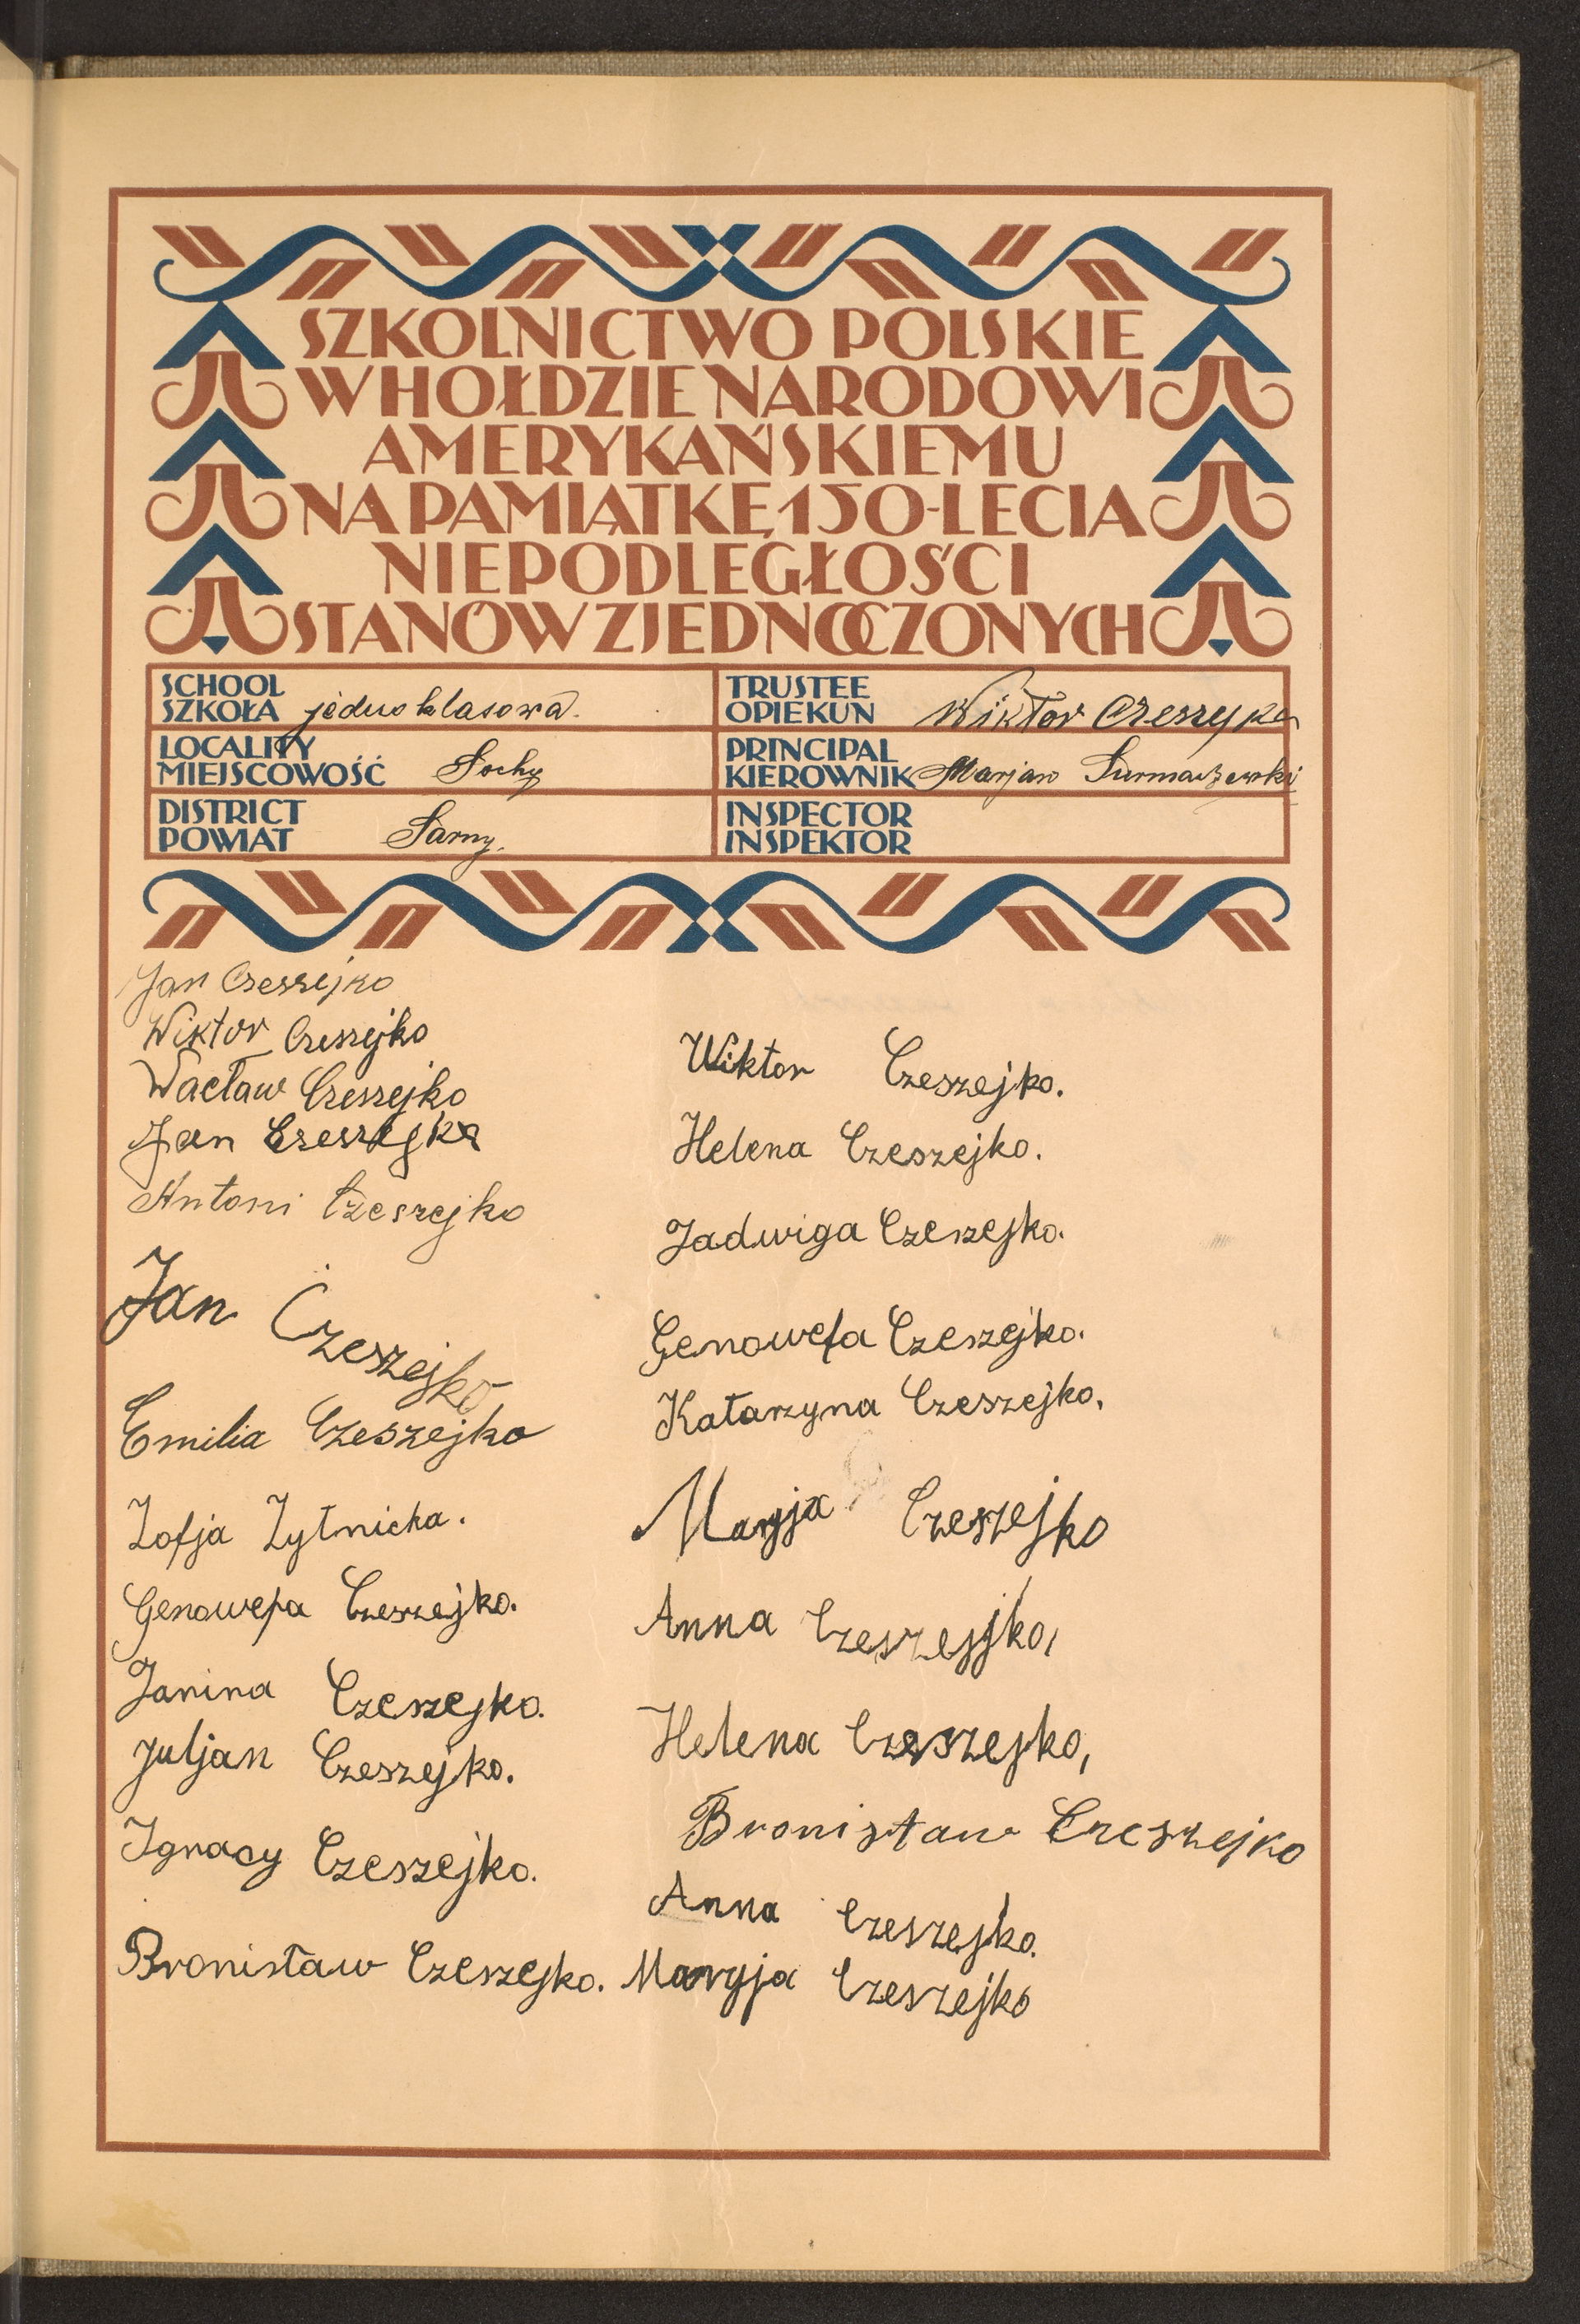 SZKOLNICTWO POLSKIE
W HOŁDZIE NARODOWI
AMERYKAŃSKIEMU
NA PAMIĄTKĘ 150-LECIA
NIEPODLEGŁOŚCI
STANÓW ZJEDNOCZONYCH
SCHOOL
SZKOŁA jednoklasowa.
LOCALITY
MIEJSCOWOŚĆ Sochy
DISTRICT
POWIAT Sarny.
TRUSTEE
OPIEKUN Wiktor
PRINCIPAL
KIEROWNIK Marjan Surmaczewski
INSPECTOR
INSPEKTOR
Jan Czeszejko
Wiktor Czeszejko
Wacław Czeszejko
Jan Czeszejko
Antoni Czeszejko
Jan Czeszejko
Emilia Czeszejko
Zofja Żytnicka.
Genowefa Czeszejko.
Janina Czeszejko.
Juljan Czeszejko.
Ignacy Czeszejko.
Bronisław Czeszejko.
Wiktor Czeszejko.
Helena Czeszejko.
Jadwiga Czeszejko.
Genowefa Czeszejko.
Katarzyna Czeszejko.
Maryja Czeszejko
Anna Czeszejko,
Helena Czeszejko,
Bronisław Czeszejko
Anna Czeszejko.
Maryja Czeszejko